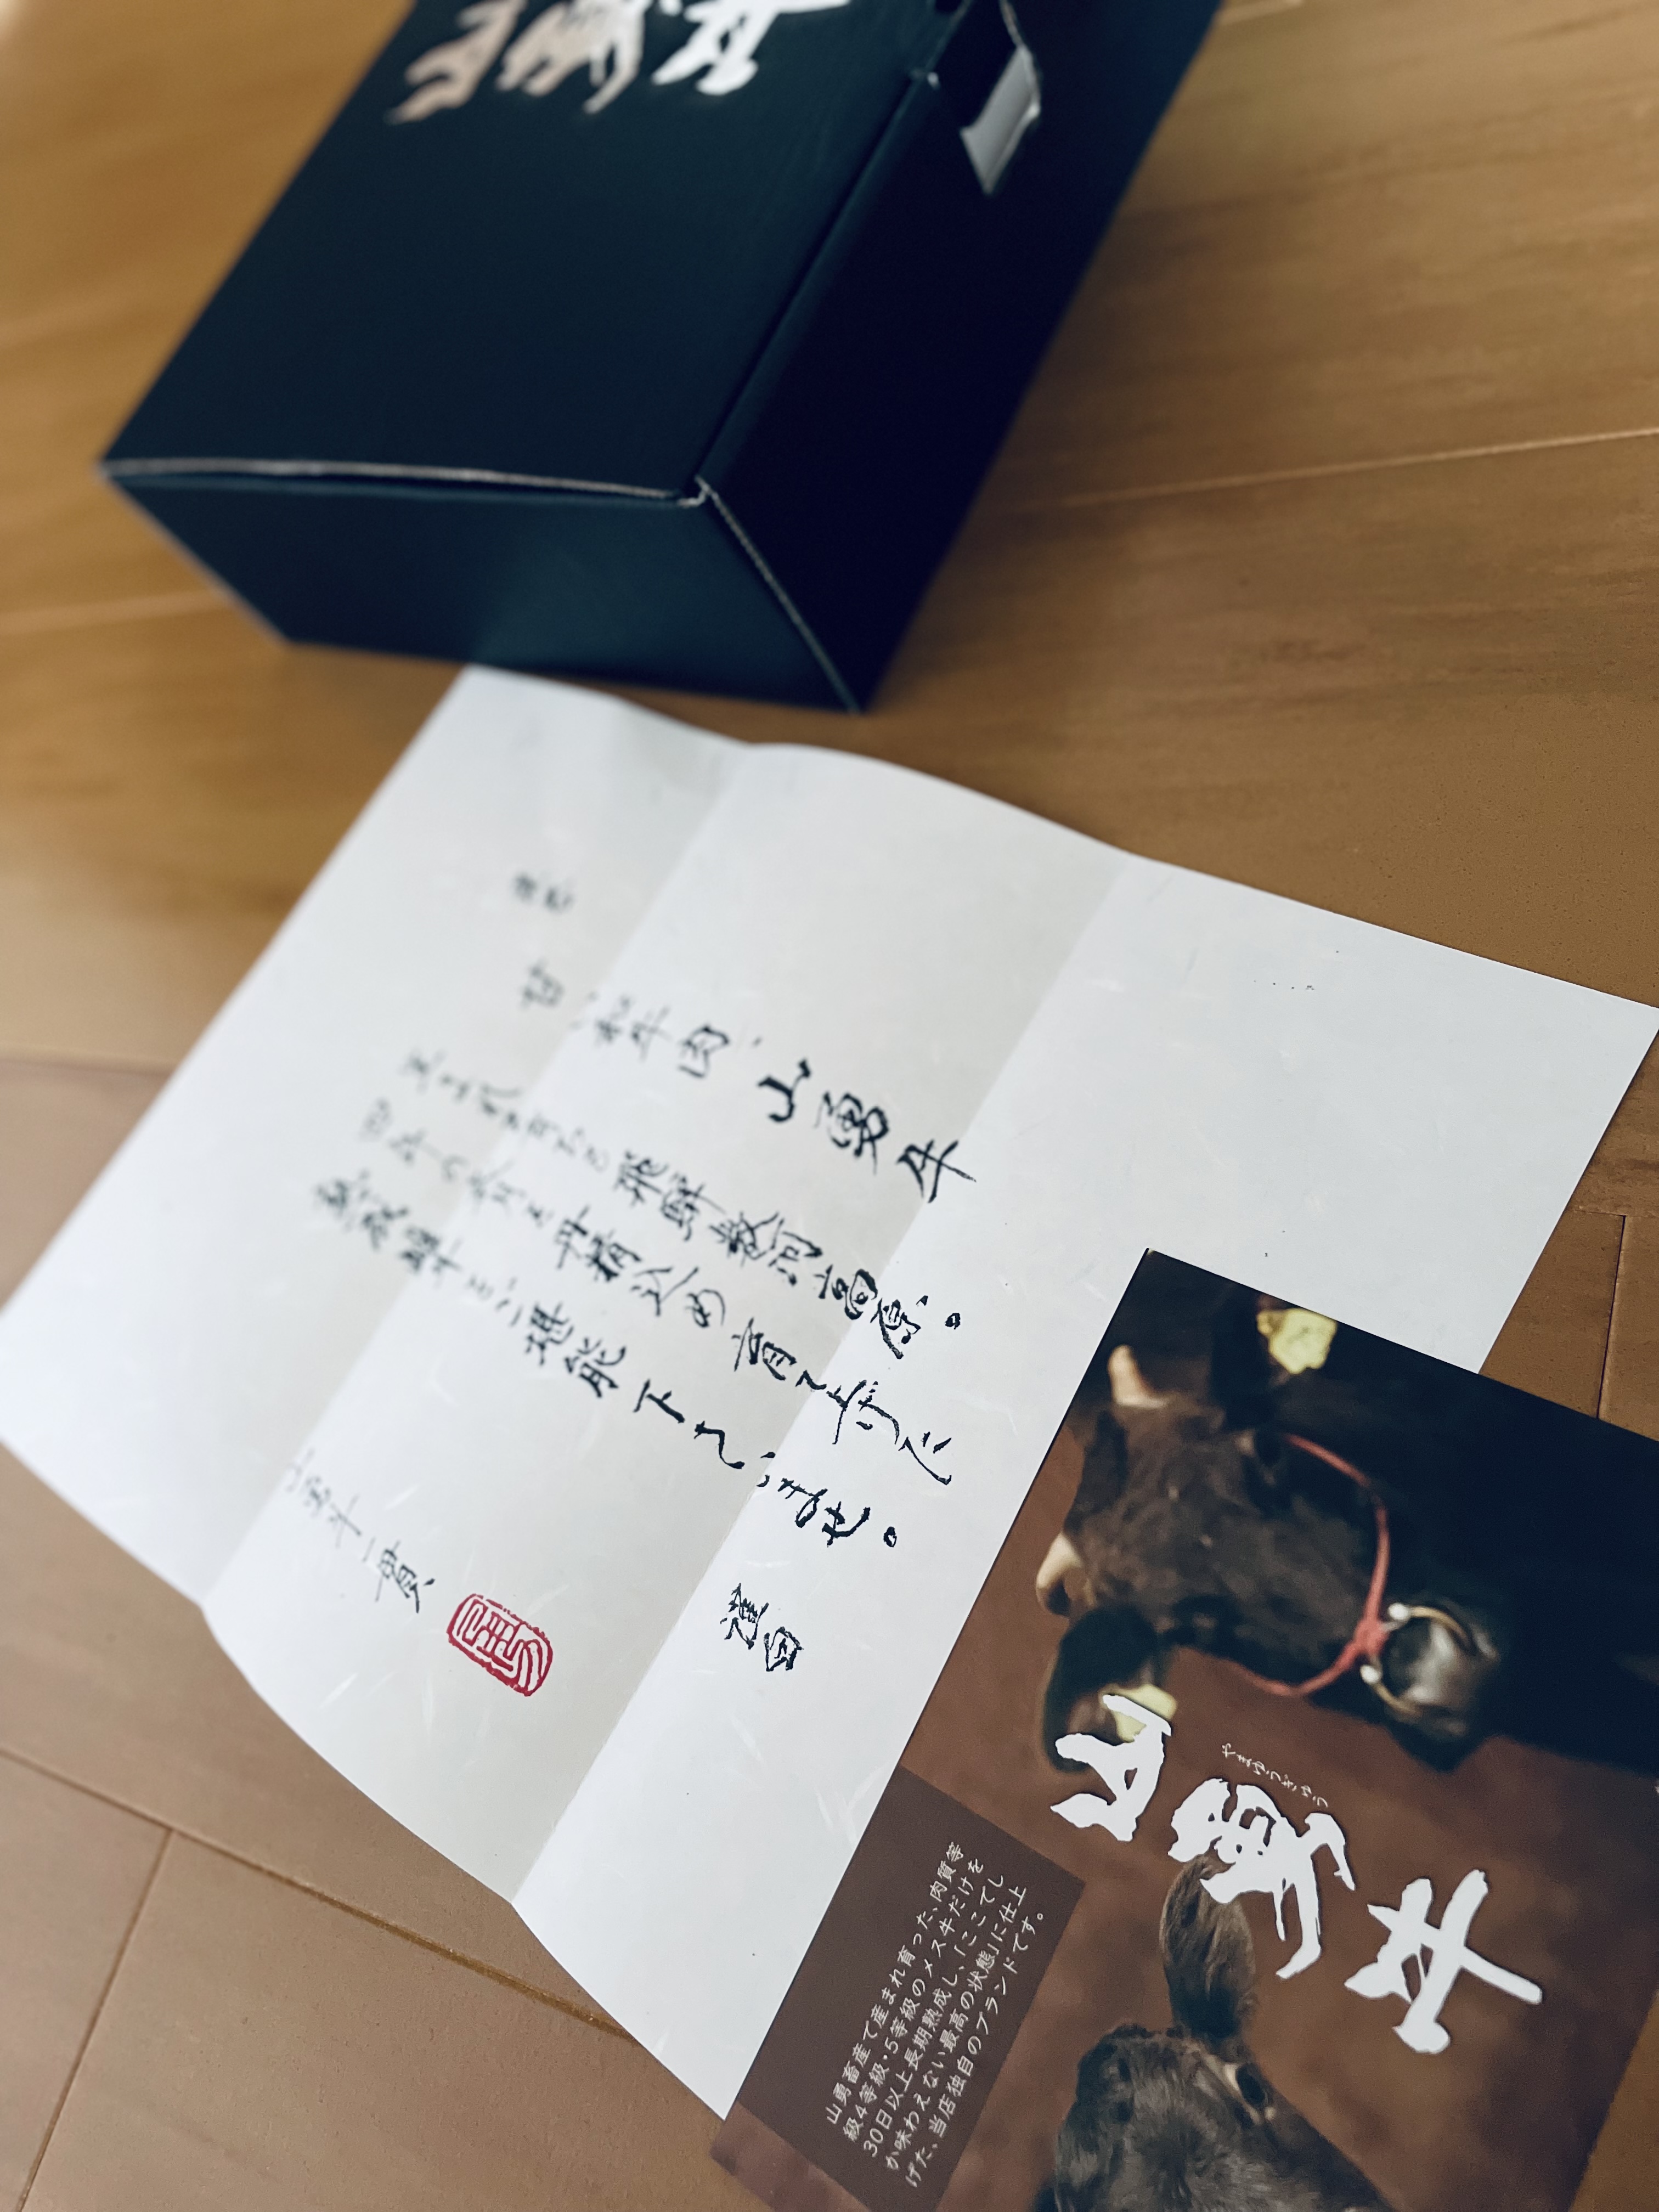 山勇牛
甘い和牛肉、山勇牛
生まれ育ちは飛騨数河高原。
四年の歳月と丹精込め育て上げた
熟成雌牛をご堪能下さいませ。
謹白
やまゆうぎゅう
山勇牛
山勇畜産で産まれ育った、肉質等
級4等級・5等級のメス牛だけを
30日以上長期熟成し、「ここでし
か味わえない最高の状態」に仕上
げた、当店独自のブランドです。